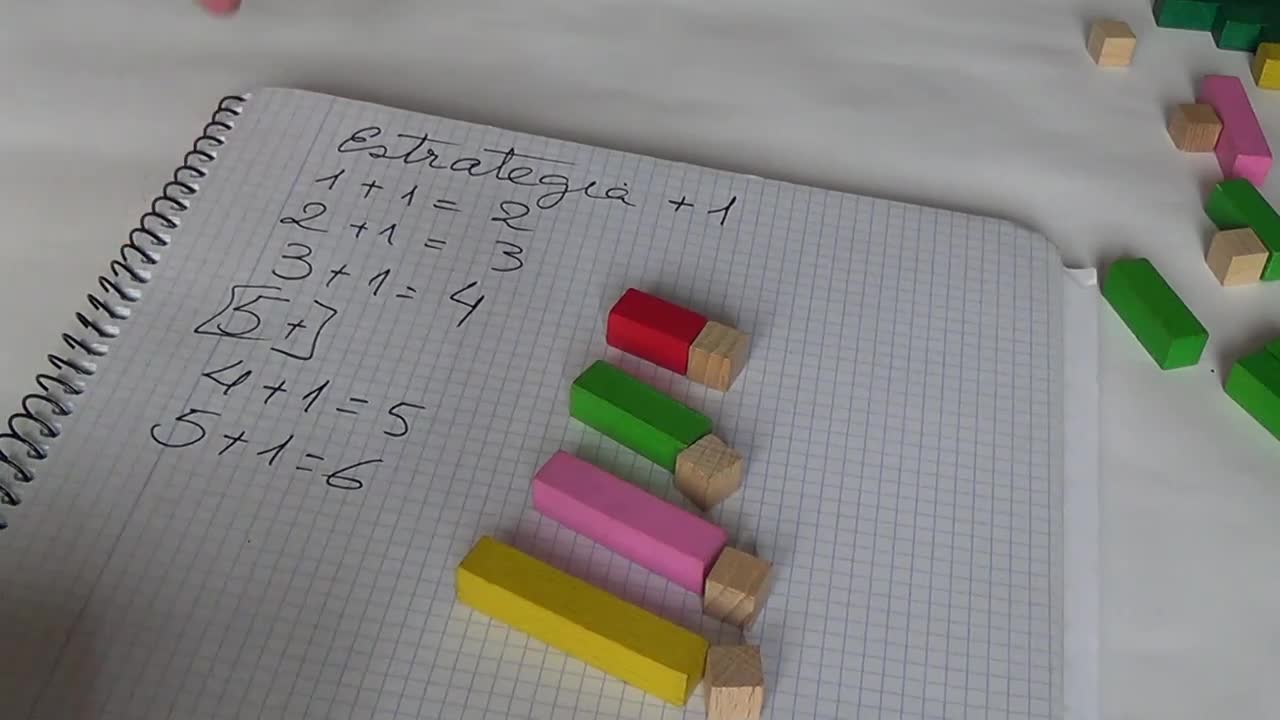 Estrategia +1
1 + 1 = 2
2 + 1 = 3
3 + 1 = 4
[5 +]
4 + 1 = 5
5 + 1 = 6